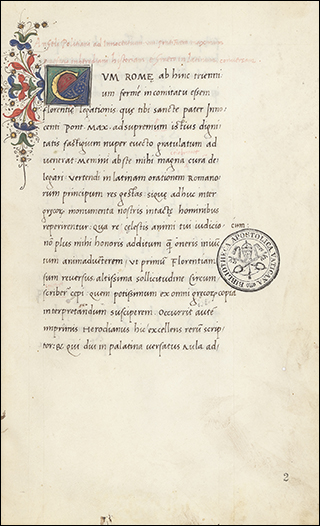 CVM ROMĘ ab hinc trienni
um fermè in comitatu essem
florentię legationis que tibi sancte pater Inno
centi Pont Max. ad supremum istius digni
tatis fastigium nuper euecto gratulatum ad
uenerat. Memini abs te mihi magna cura de
legari Vertendi in latinam orationem Romano
rum principum res gestas siqua adhuc inter
gręcorum monumenta nostris intacta hominibus
reperirentur. Qua re cęlestis animi tui iudicio cum
nō plus mihi honoris additum quam oneris iniuc
tum animaduerterem. Vt primum Florentiam
sum reuersus altissima sollicitudine circum
scribere cępi quem potissimum ex omni gręcorum copia
interpretandum susciperem. Occurrit autē
imprimis Herodianus hic excellens rerū scrip
tor: & qui diu in palatina uersatus Aula ad
BIBLIOTHECA APOSTOLICA VATICANA
2